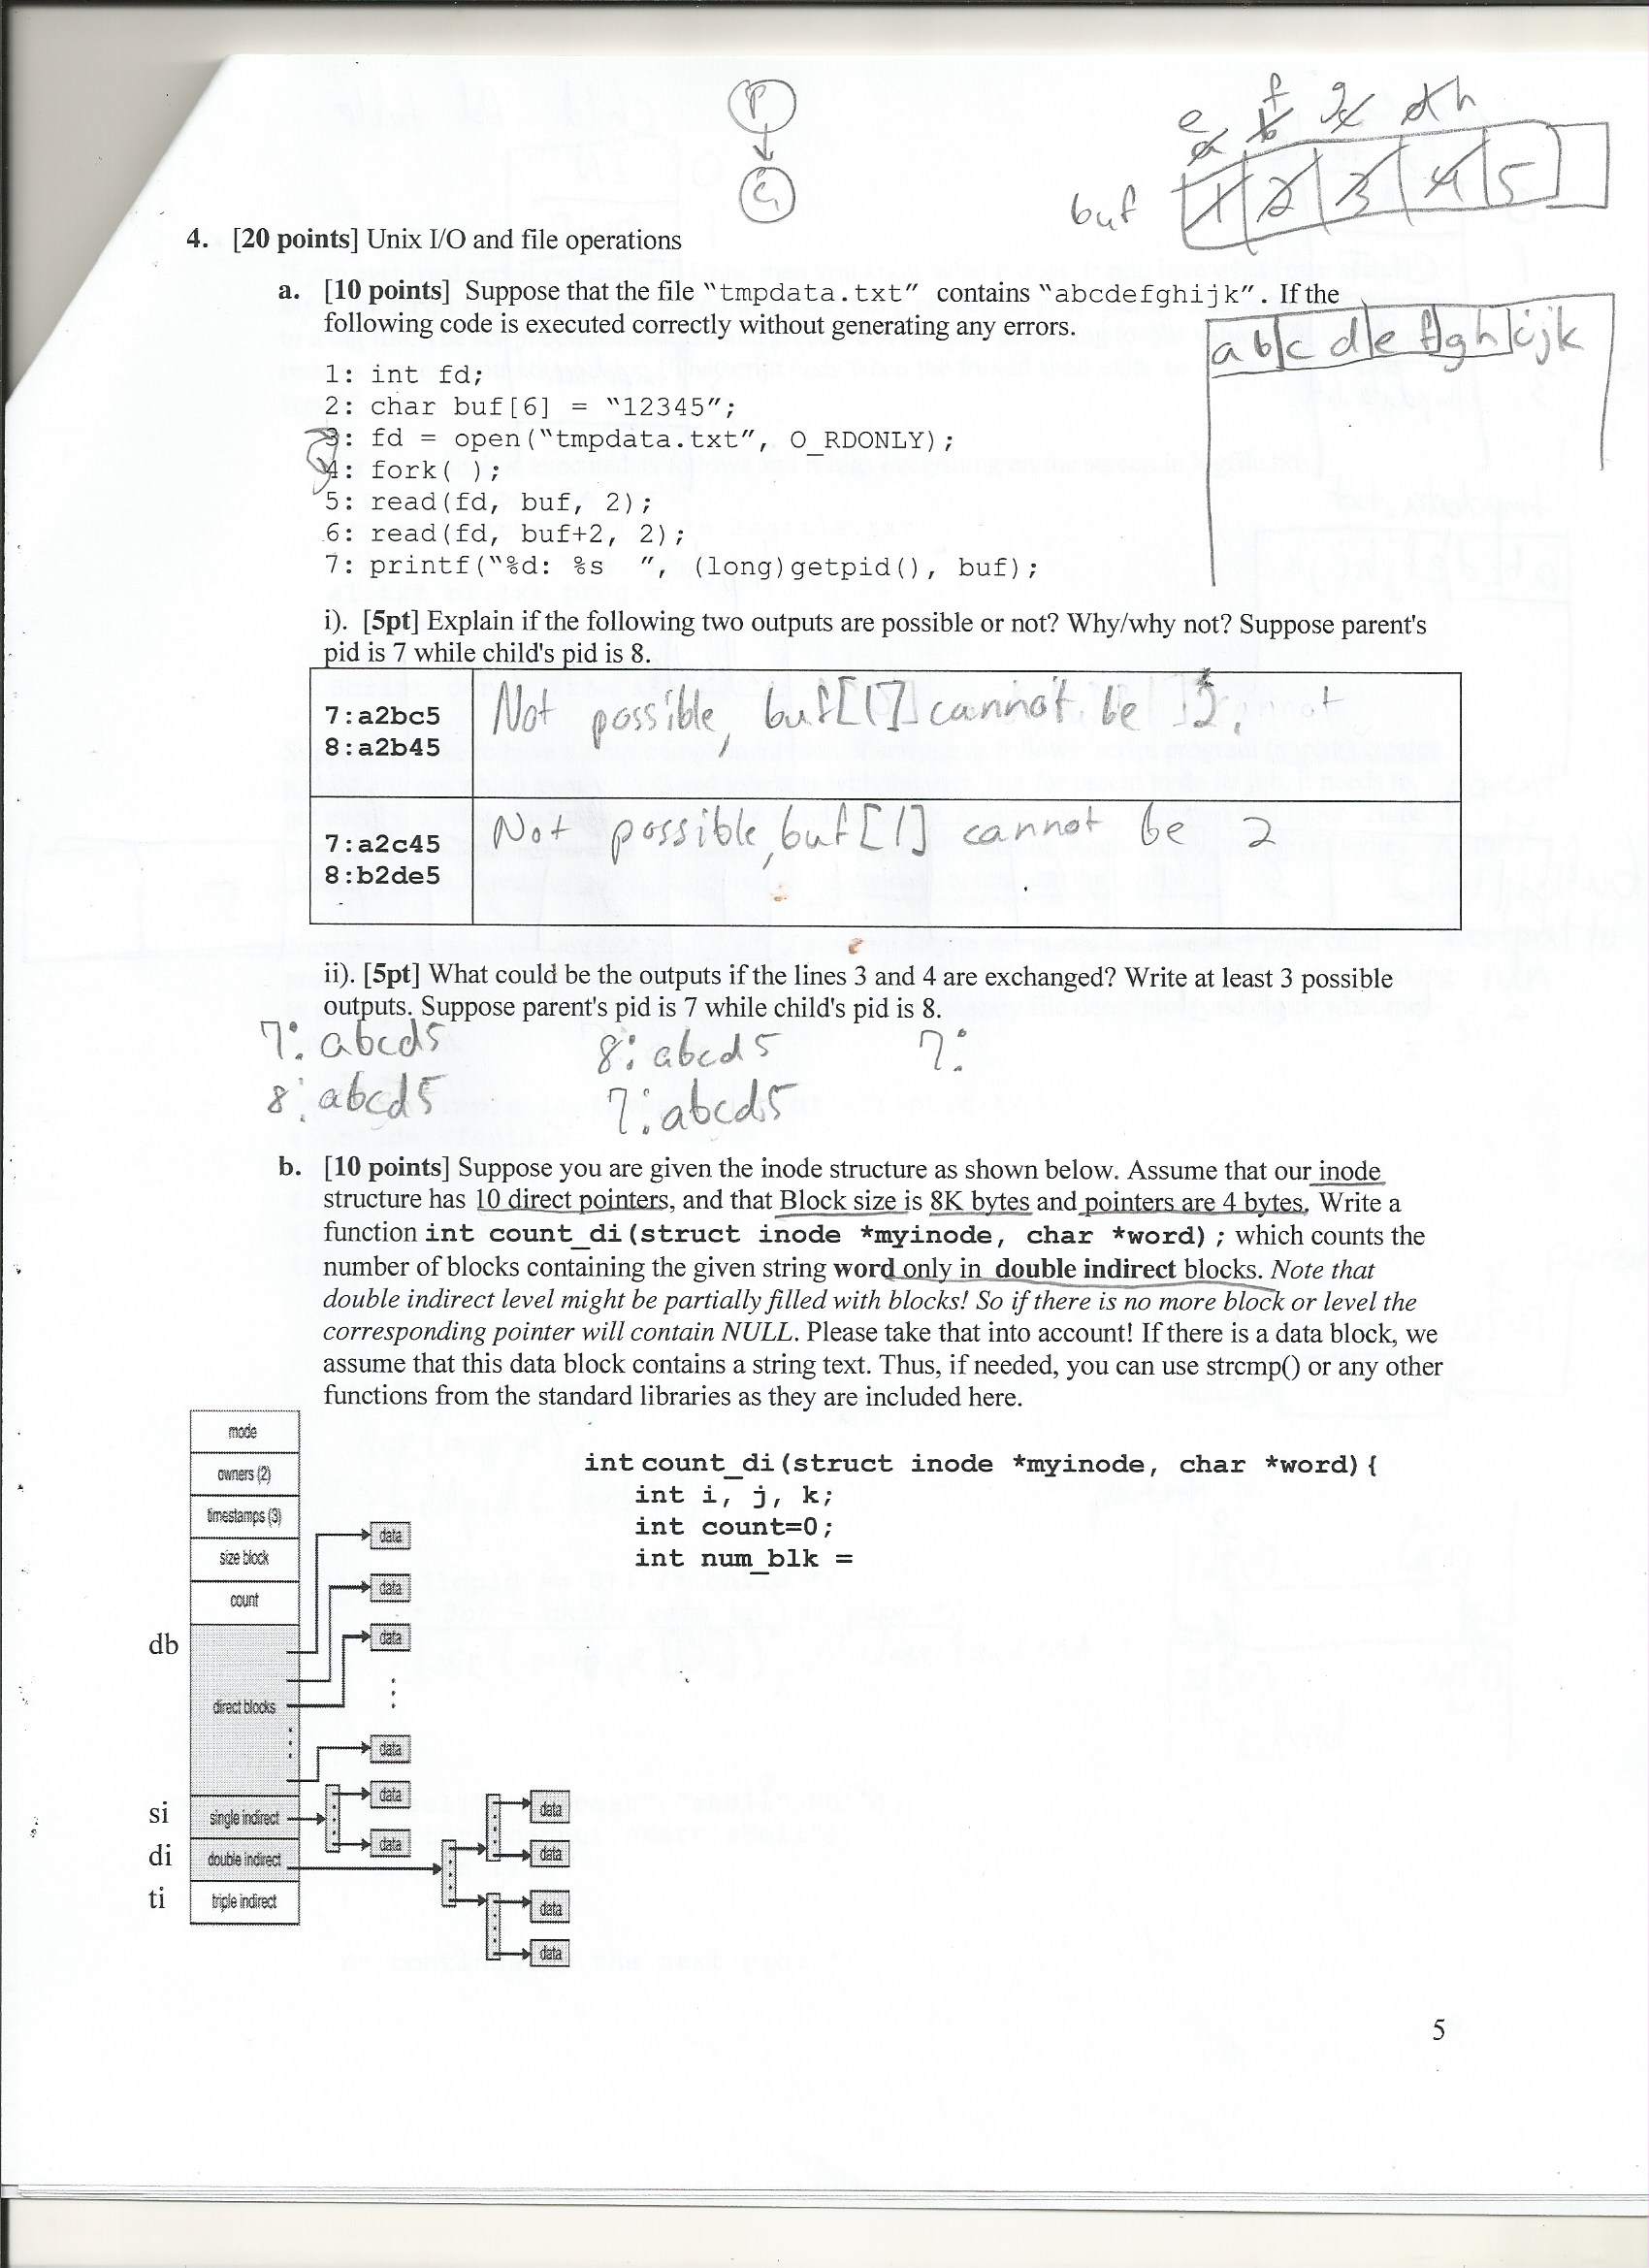 P
C
e f g h
a b c d
buf 1 2 3 4 5
4. [20 points] Unix I/O and file operations
a. [10 points] Suppose that the file “tmpdata.txt” contains “abcdefghijk”. If the
following code is executed correctly without generating any errors.
abcdefghijk
1: int fd;
2: char buf[6] = “12345”;
3: fd = open(“tmpdata.txt”, O_RDONLY);
4: fork( );
5: read(fd, buf, 2);
6: read(fd, buf+2, 2);
7: printf(“%d: %s ”, (long)getpid(), buf);
i). [5pt] Explain if the following two outputs are possible or not? Why/why not? Suppose parent's
pid is 7 while child's pid is 8.
7:a2bc5
8:a2b45
Not possible, buf[1] cannot be 2.
7:a2c45
8:b2de5
Not possible, buf[1] cannot be 2
ii). [5pt] What could be the outputs if the lines 3 and 4 are exchanged? Write at least 3 possible
outputs. Suppose parent's pid is 7 while child's pid is 8.
7: abcd5 8: abcd5 7:
8: abcd5 7: abcd5
b. [10 points] Suppose you are given the inode structure as shown below. Assume that our inode
structure has 10 direct pointers, and that Block size is 8K bytes and pointers are 4 bytes. Write a
function int count_di(struct inode *myinode, char *word); which counts the
number of blocks containing the given string word only in double indirect blocks. Note that
double indirect level might be partially filled with blocks! So if there is no more block or level the
corresponding pointer will contain NULL. Please take that into account! If there is a data block, we
assume that this data block contains a string text. Thus, if needed, you can use strcmp() or any other
functions from the standard libraries as they are included here.
int count_di(struct inode *myinode, char *word){
int i, j, k;
int count=0;
int num_blk =
mode
owners (2)
timestamps (3)
size block
count
db
direct blocks
si
single indirect
di
double indirect
ti
triple indirect
data
data
data
data
data
data
data
data
data
data
5